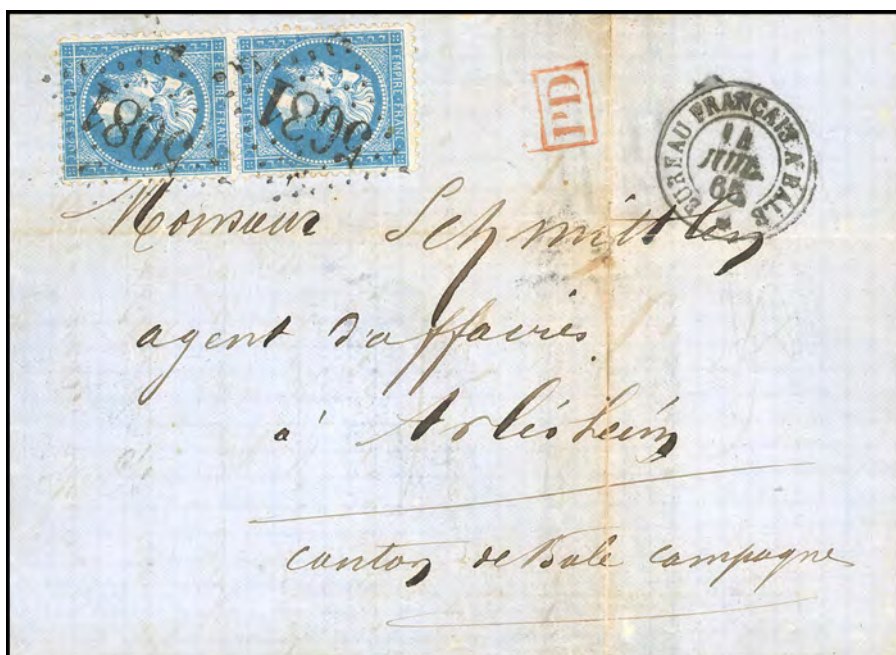 EMPIRE FRANC
EMPIRE FRANC
PD
BUREAU FRANÇAIS A BALE
14
JUIL.
65
Monsieur Schmittley
agent d'affaires
à Arlesheim
canton de Bale campagne